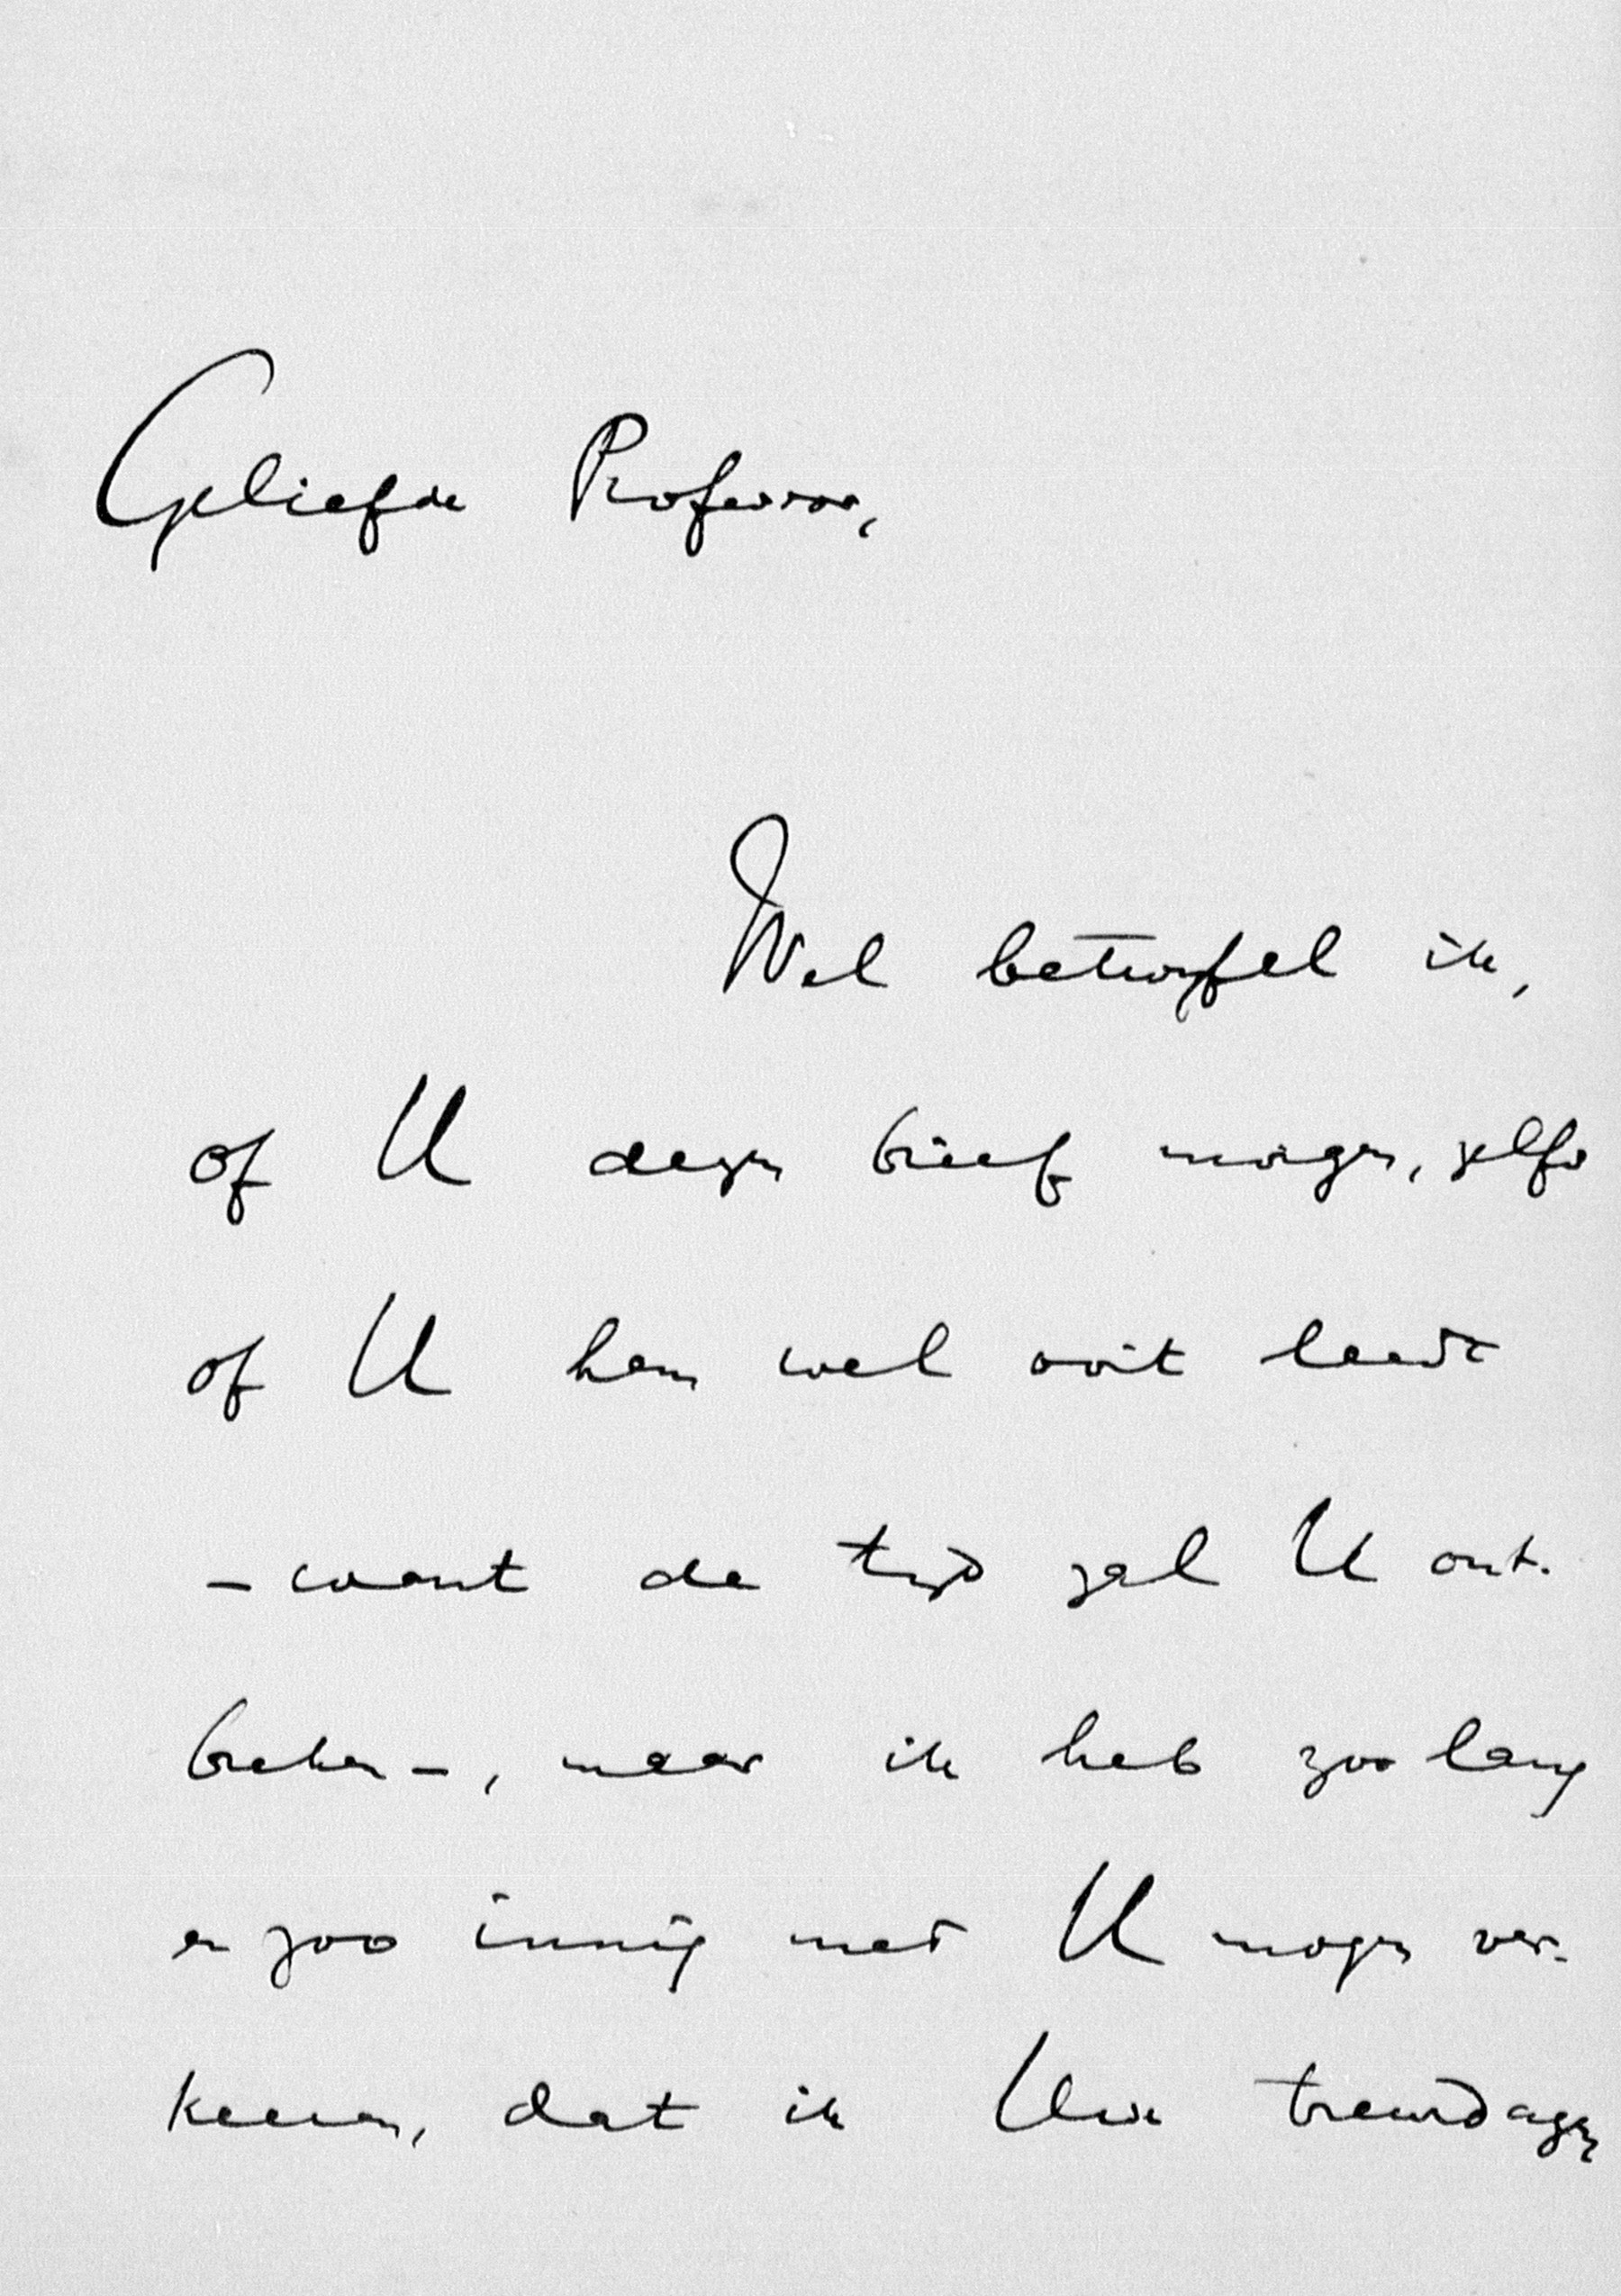 Geliefde Professor,
Wel betwijfel ik,
of U dezen brief morgen, zelfs
of U hem wel ooit leest
– want de tijd zal U ont-
breken –, maar ik heb zoo lang
en zoo innig met U mogen ver-
keeren, dat ik Uw treurdagen